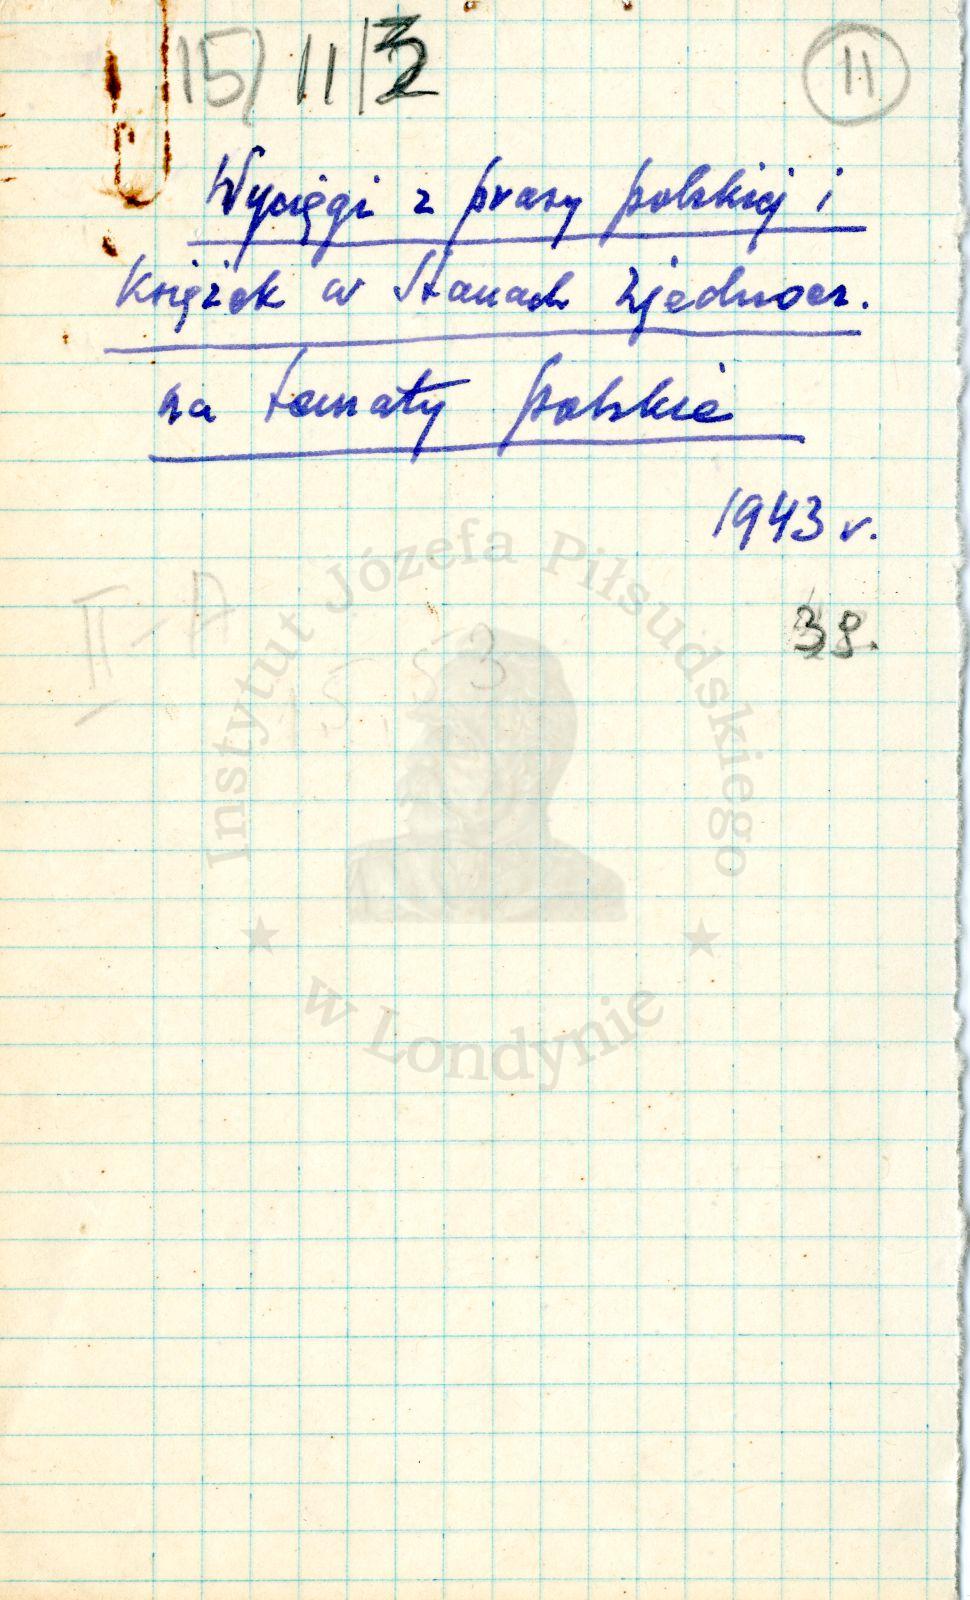 15/11/3
11
Wyciągi z prasy polskiej i
Książek w Stanach Zjednocz.
na tematy polskie
1943 r.
38.
II-A
Instytut Józefa Piłsudskiego
w Londynie